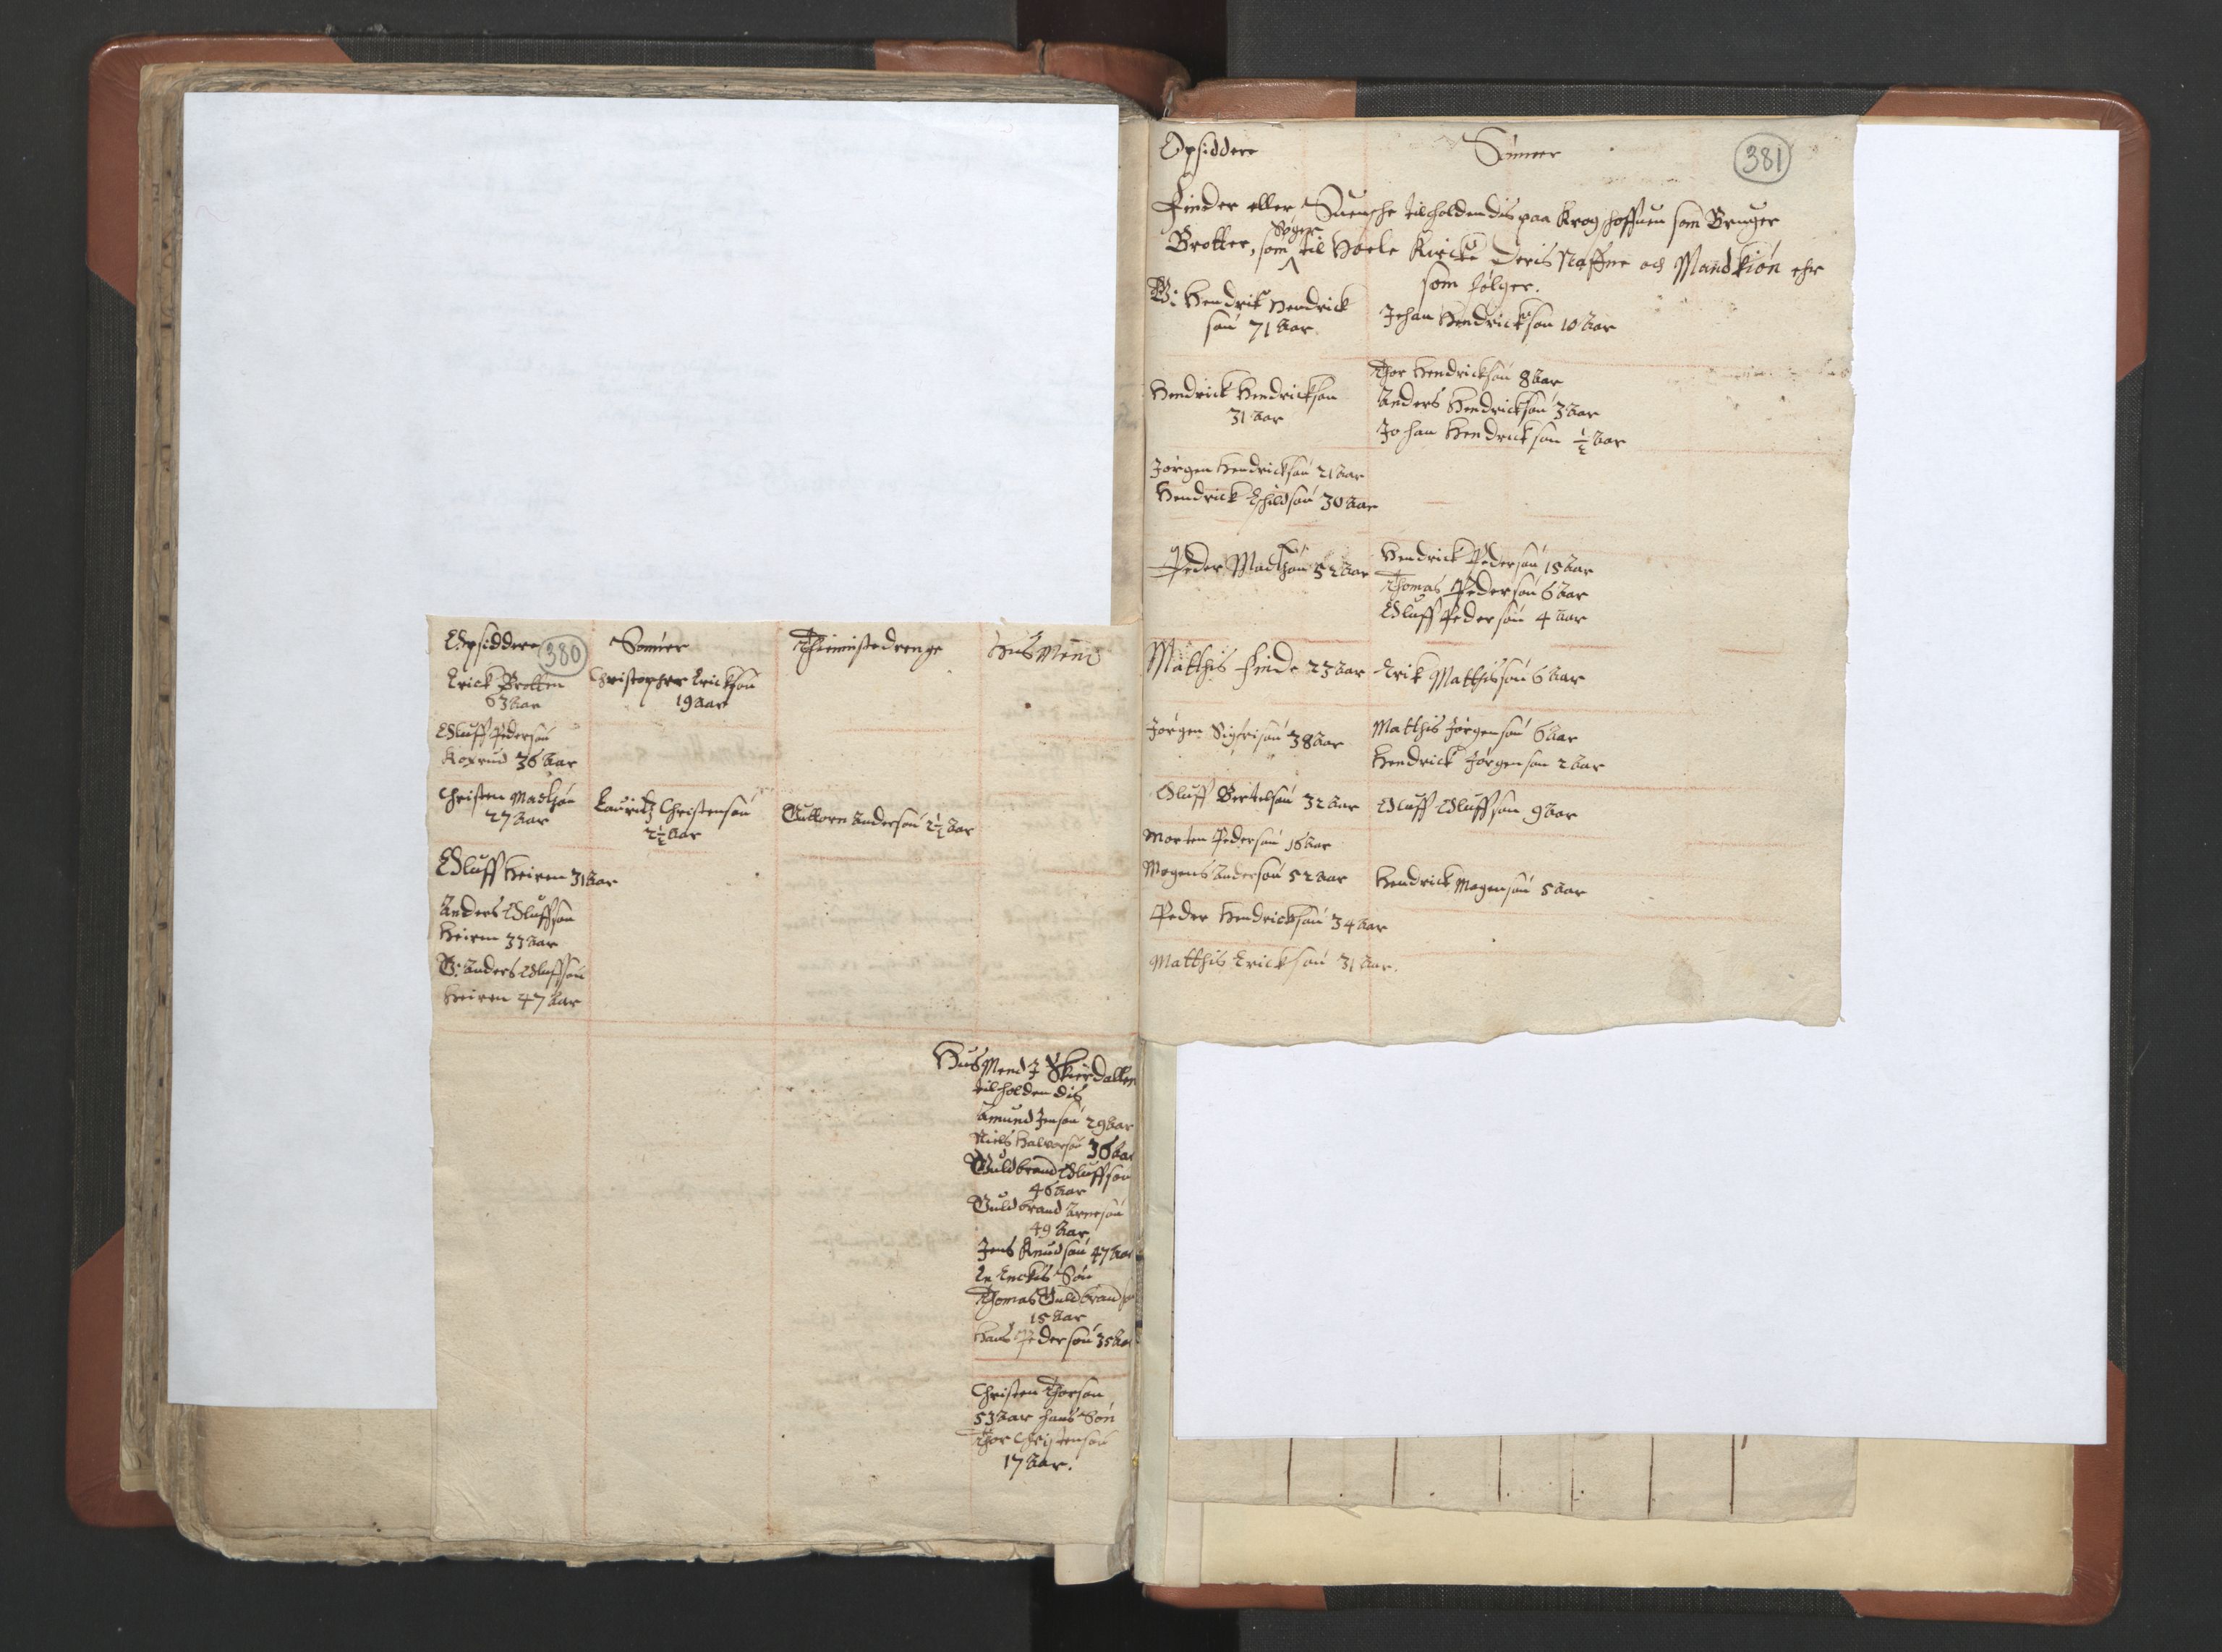 Opsiddere 380 Sønner Thiennistedrenge HusMend
Erick Brotten
63 Aar
Christopher Erickson
19 Aar
Oluff Pederson
Koxrud 36 Aar
Christen Madtzøn
27 Aar
Lauritz Christenson
2½ Aar
Guttorm Anderson 2½ Aar
Oluff Heiren 31 Aar
Anders Oluffson
Heiren 33 Aar
G: Anders Oluffson
Heiren 47 Aar
HusMend J Skierdallen
tilholdendis
Amund Jenson 29 Aar
Niels Halvorson 36 Aar
Guldbrand Oluffson
46 Aar
Guldbrand Arneson
49 Aar
Jens Knudson 47 Aar
En Enckis Søn
Thomas Guldbrandson
15 Aar
Hans Pederson 35 Aar
Christen Thorson
53 Aar hans Søn
Thor Christenson
17 Aar.
Opsiddere Sønner 381
Finder eller Suenche tilholdendis paa Kroghoffuen som Bruger
Søger
Brotter, som til Hoele Kircke Deris Naffne och Mandkiøn ehr
som følger.
G: Hendrik Hendrick
son 71 Aar
Johan Hendrickson 10 Aar
Hendrick Hendrickson
31 Aar
Thor Hendrickson 8 Aar
Anders Hendrickson 3 Aar
Johan Hendrickson ½ Aar
Jørgen Hendrickson 21 Aar
Hendrick Eschildson 30 Aar
Peder Madtzøn 52 Aar
Hendrick Pederson 15 Aar
Thomas Pederson 6 Aar
Oluff Pederson 4 Aar
Matthis Finde 23 Aar Erik Matthisson 6 Aar
Jørgen Sigfrison 38 Aar
Matthis Jørgenson 6 Aar
Hendrick Jørgenson 2 Aar
Oluff Bertelson 32 Aar Oluff Oluffson 9 Aar
Morten Pederson 16 Aar
Mogens Anderson 52 Aar Hendrick Mogenson 5 Aar
Peder Hendrickson 34 Aar
Matthis Erickson 31 Aar.